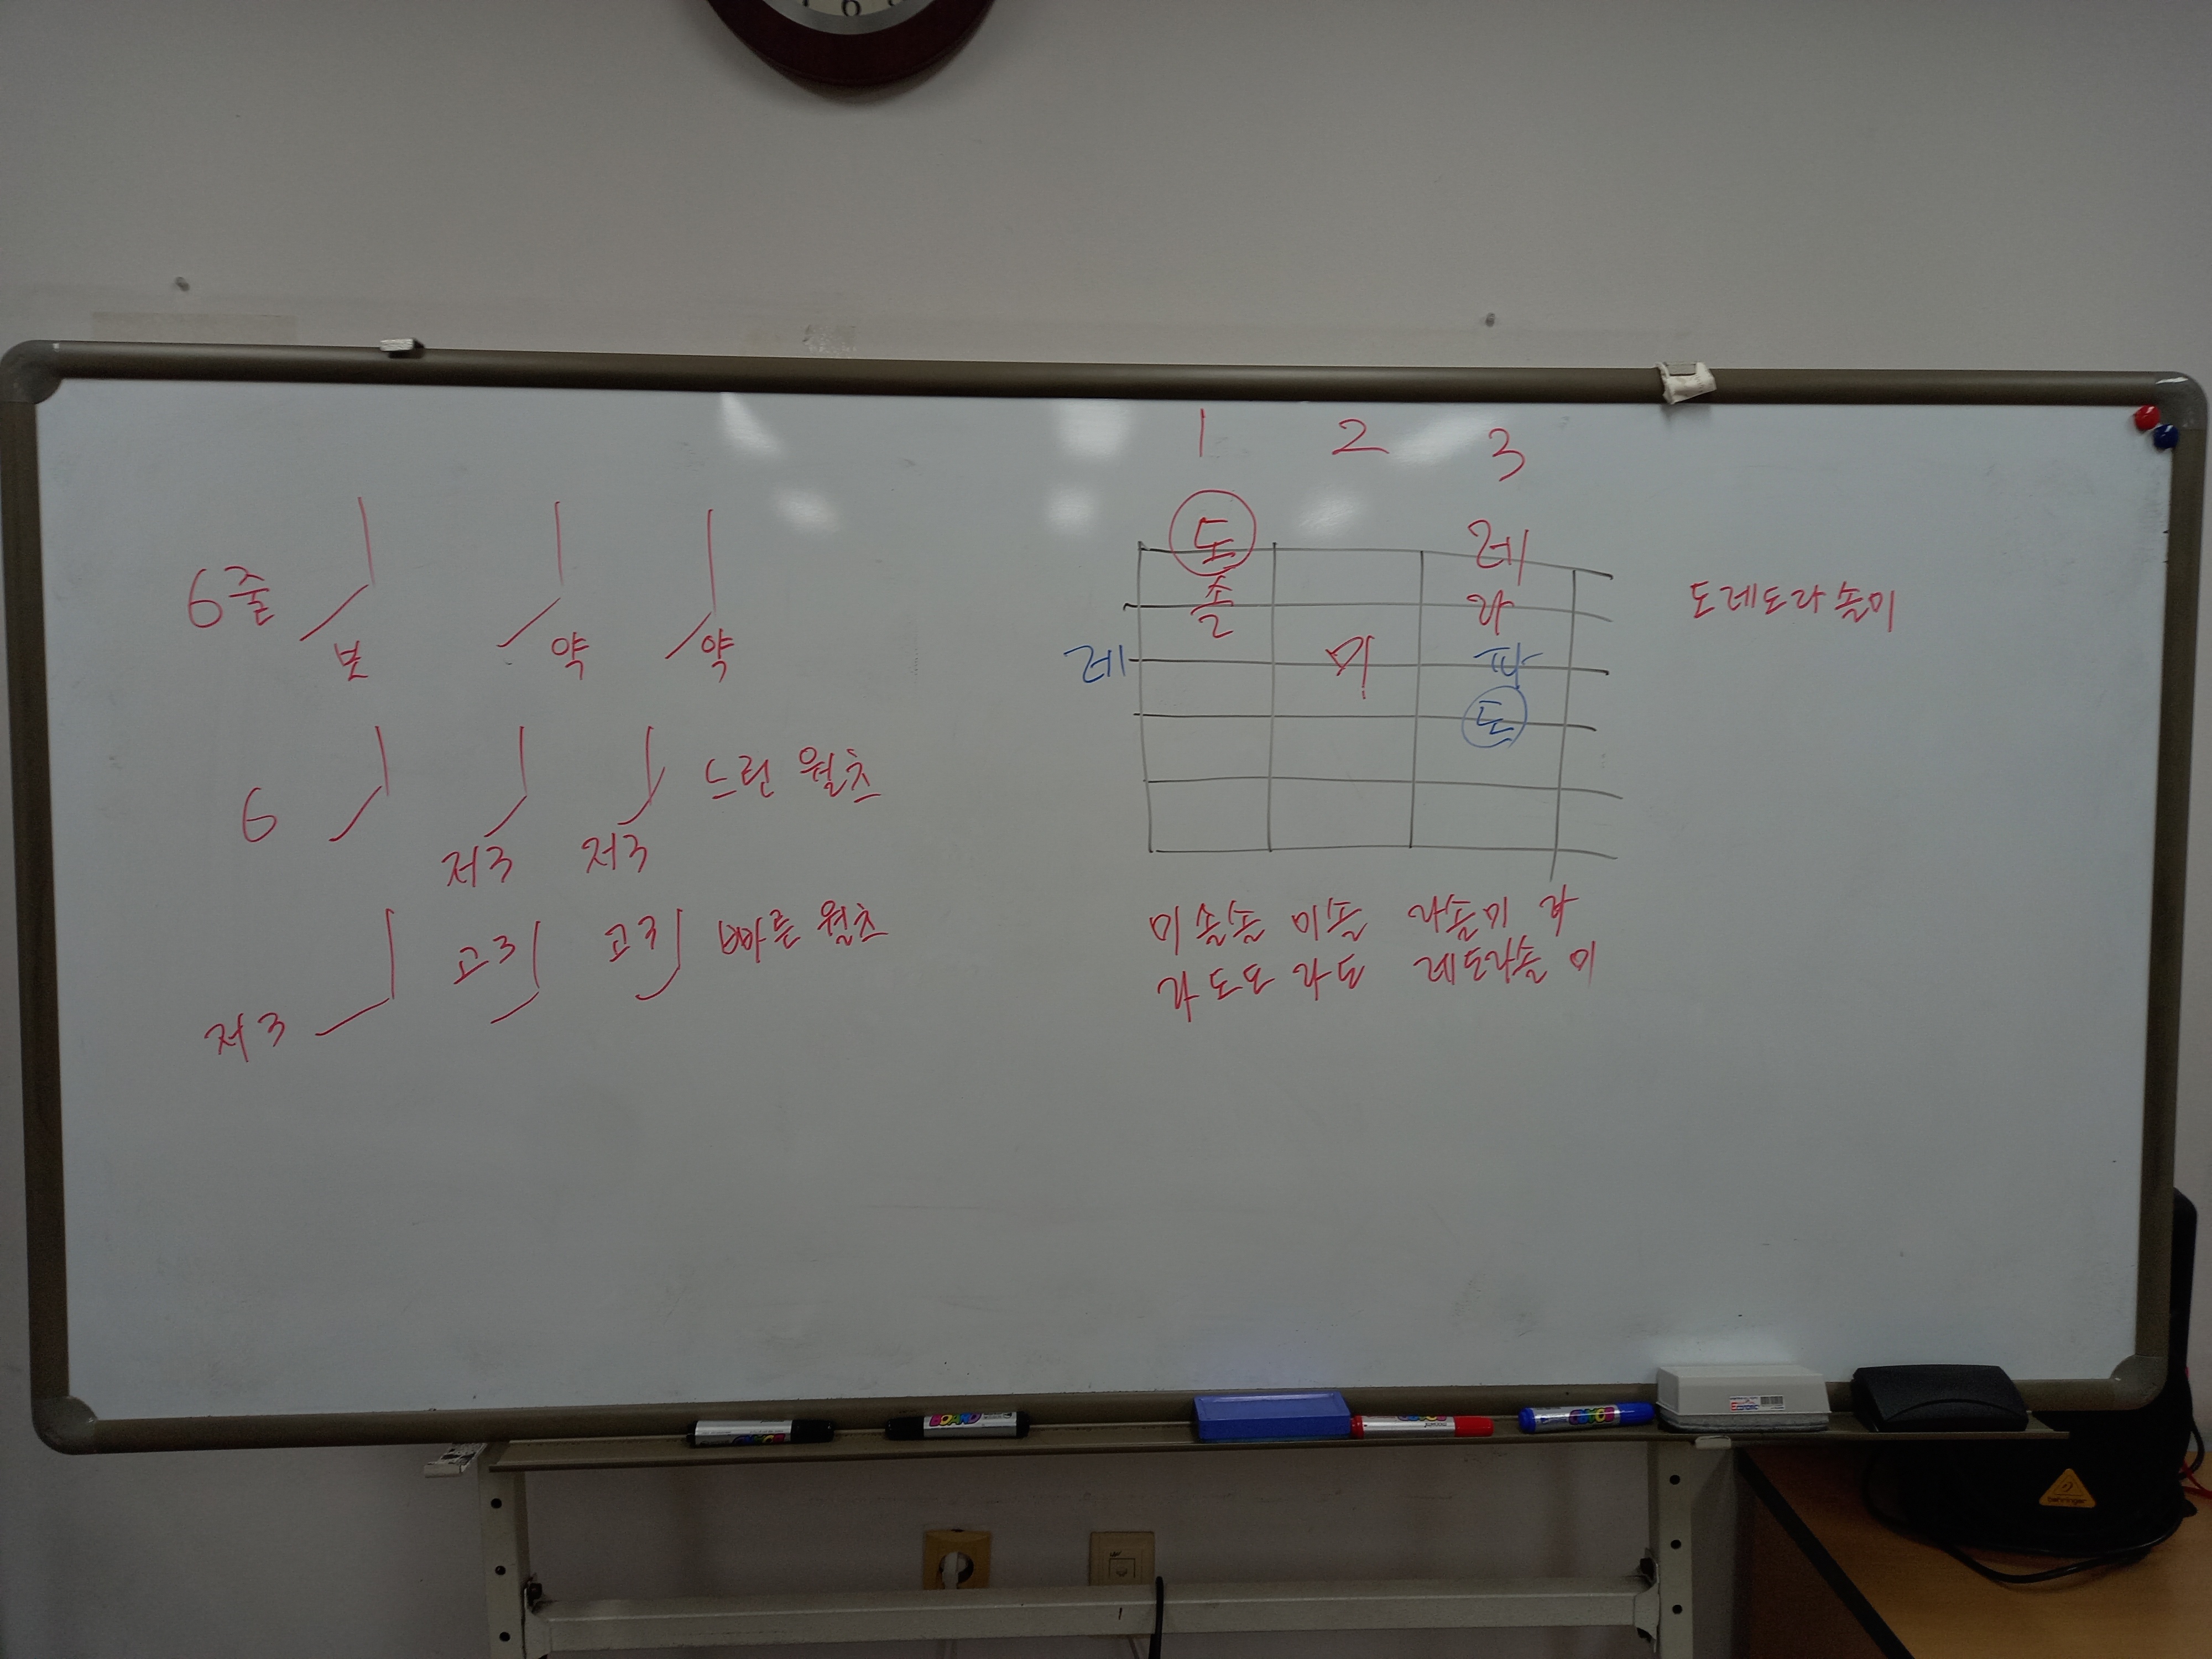 6줄 본 약 약
6 저3 저3 느린 왈츠
저3 고3 고3 빠른 왈츠
1 2 3
도 레
솔 라
레 미 파
도
도레도라솔미
미솔솔 미솔 라솔미 라
라도도 라도 레도라솔 미
BOARD
behringer